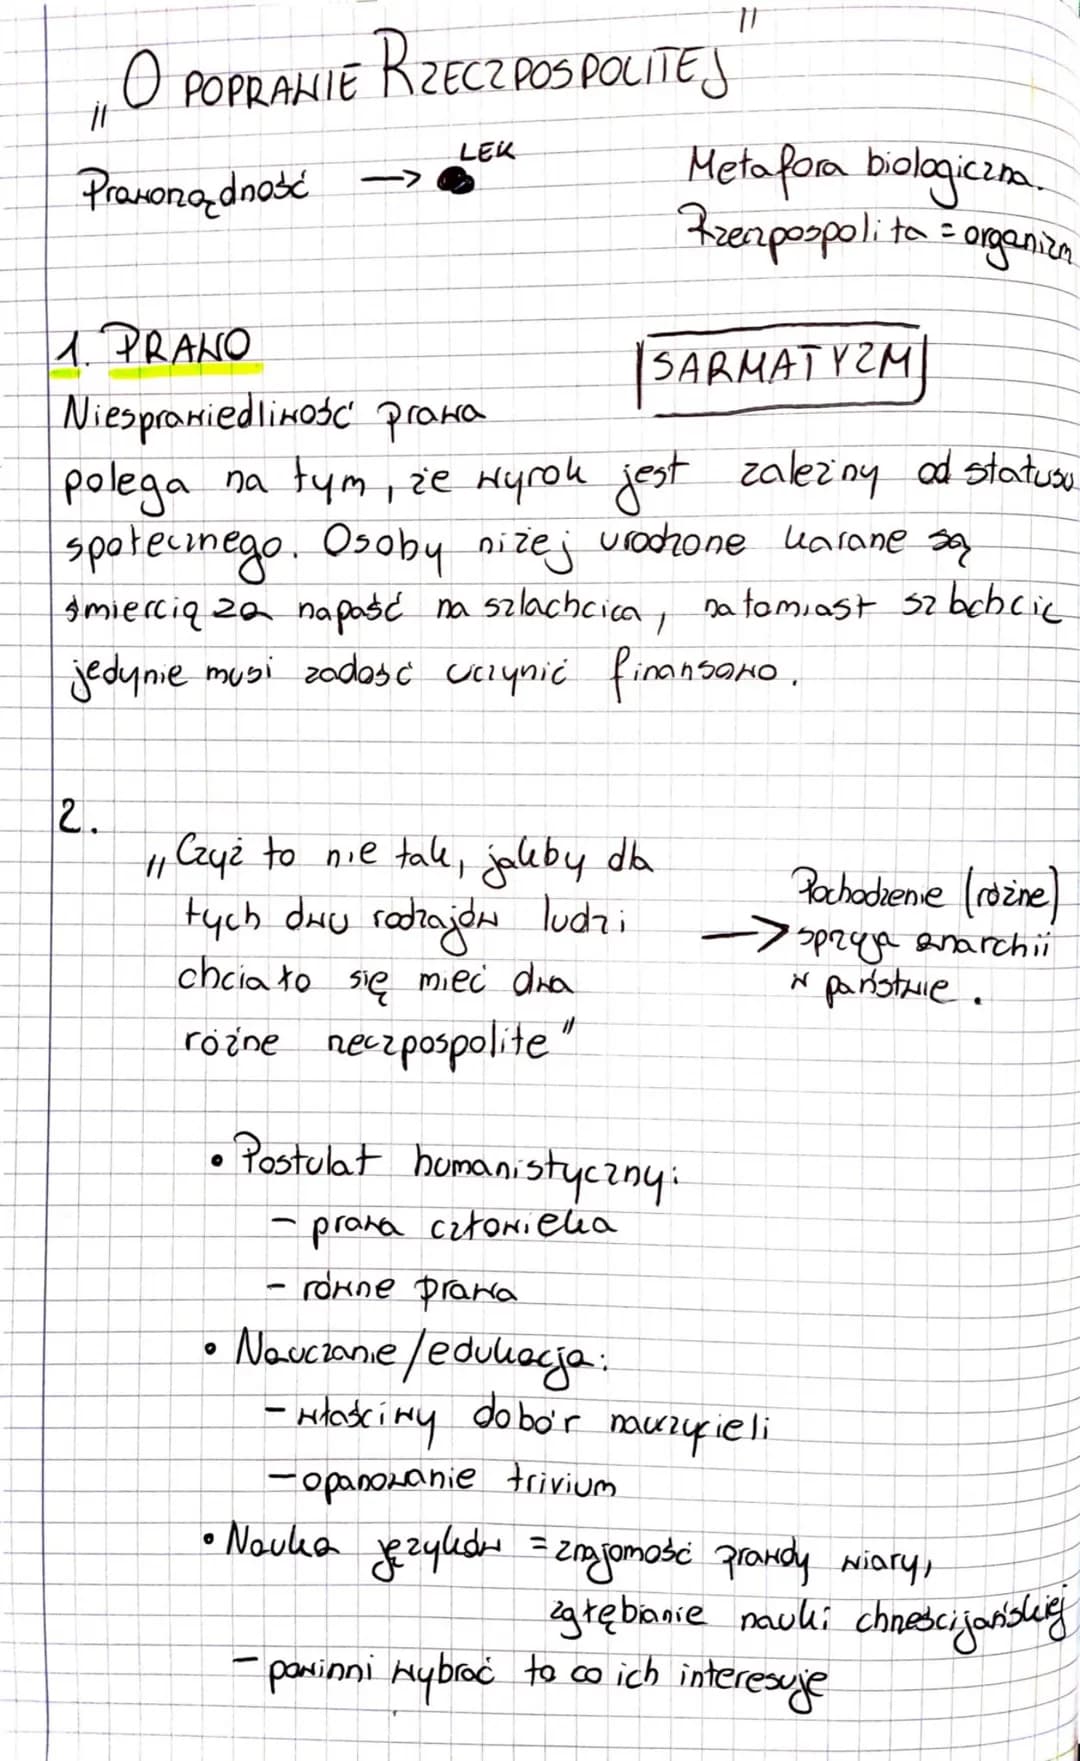 „O POPRAWIE RZECZPOSPOLITEJ"
Praworządność → LEK
Metafora biologiczna.
Rzeczpospolita = organizm
1. PRAWO
SARMATYZM
Niesprawiedliwość prawa
polega na tym, że wyrok jest zależny od statusu
społecznego. Osoby niżej urodzone karane są
śmiercią za napaść na szlachcica, natomiast szlachcic
jedynie musi zadość uczynić finansowo.
2.
„Czyż to nie tak, jakby dla
tych dwu rodzajów ludzi
chciało się mieć dwa
różne rzeczpospolite"
Pochodzenie (różne)
→ sprzyja anarchii
w państwie.
• Postulat humanistyczny:
- prawa człowieka
- równe prawa
• Nauczanie/edukacja:
- właściwy dobór nauczycieli
- opanowanie trivium
• Nauka języków = znajomość prawdy wiary,
zgłębianie nauki chrześcijańskiej
- powinni wybrać to co ich interesuje